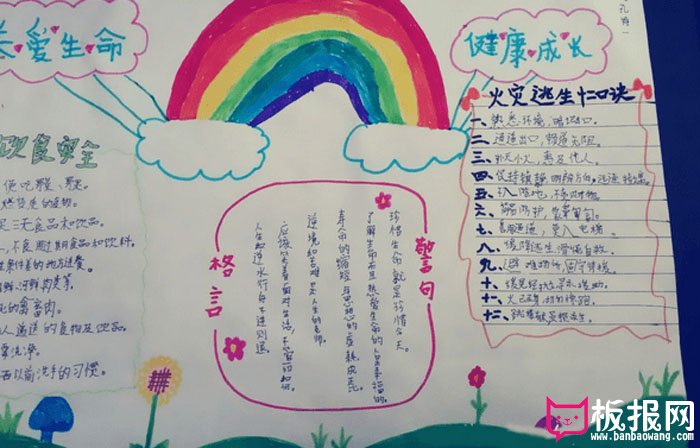 关爱生命
健康成长
孔
饮食安全
使吃
燃烧
三无食品和饮品。
不良
过期食品和饮料。
条件差的地方进餐。
的禽畜肉。
人递送的食物及饮品。
洗净。
西以前洗手的习惯。
格言
警句
珍惜生命就是珍惜今天。
了解生命而且热爱生命的人是幸福的。
寿命的缩短与思想的虚耗成正比。
逆境和苦难是人生的老师。
应该笑着面对生活,不管一切如何。
人生如逆水行舟不进则退。
火灾逃生十二口诀
一、熟悉环境,暗记出口。
二、通道出口,畅通无阻。
三、扑灭小火,惠及他人。
四、保持镇静 明辨方向,迅速撤离。
五、不入险地,不贪财物。
六、简易防护,
七、善用通道,莫入电梯。
八、缓降逃生,滑绳自救。
九、避难场所,固守待援。
十、缓晃轻抛,寻求援助。
十一、火已及身,切勿惊跑。
十二、跳楼有术,
板报网
www.banbaowang.com